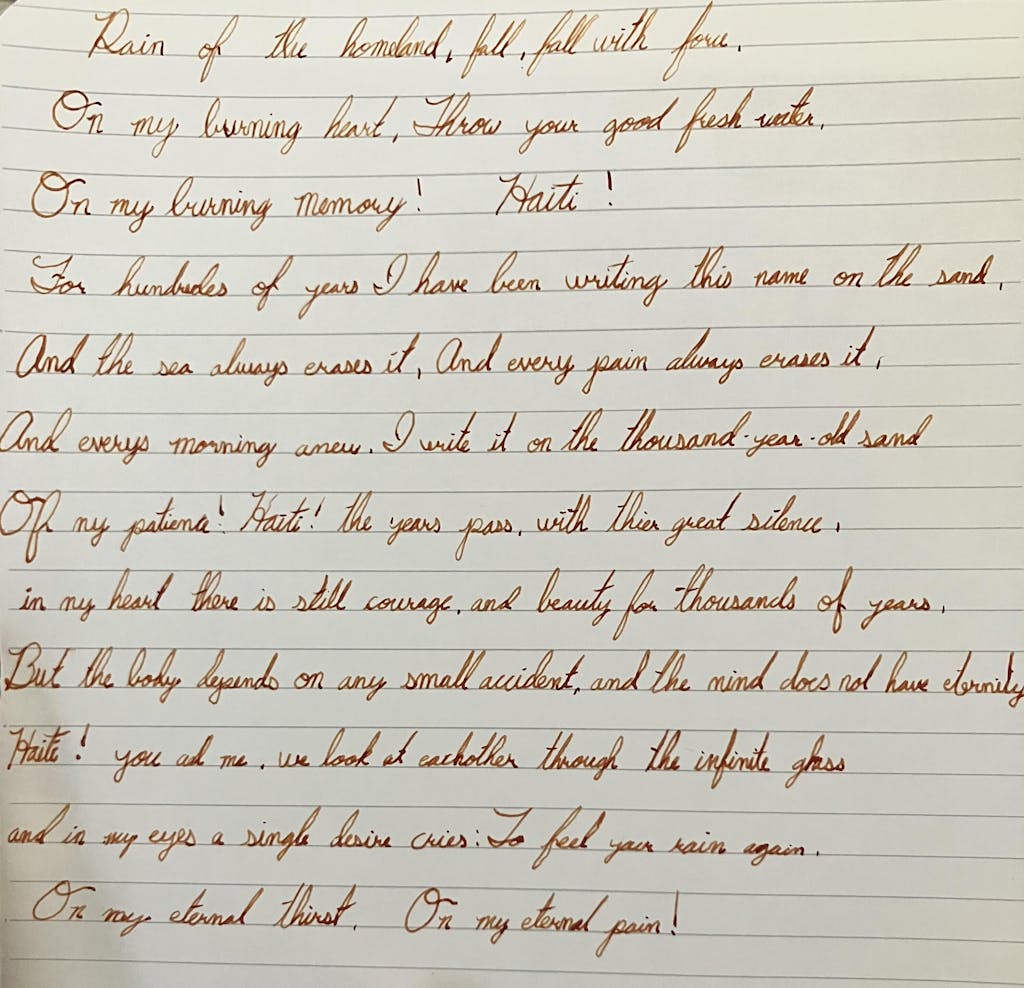 Rain of the homeland, fall, fall with force,
On my burning heart, Throw your good fresh water,
On my burning memory! Haiti!
For hundredes of years I have been writing this name on the sand,
And the sea always erases it, And every pain always erases it,
And everys morning anew. I write it on the thousand-year-old sand
Of my patience! Haiti! the years pass, with thier great silence,
in my heart there is still courage, and beauty for thousands of years,
But the body depends on any small accident, and the mind does not have eternity
Haiti! you ad me, we look at eachother through the infinite glass
and in my eyes a single desire cries: To feel your rain again.
On my eternal thirst, On my eternal pain!